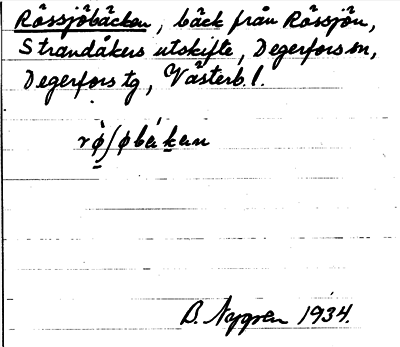 Rössjöbäcken, bäck från Rössjön,
Strandåkers utskifte, Degerfors sn,
Degerfors tg, Västerb. l.
B. Nygren 1934.